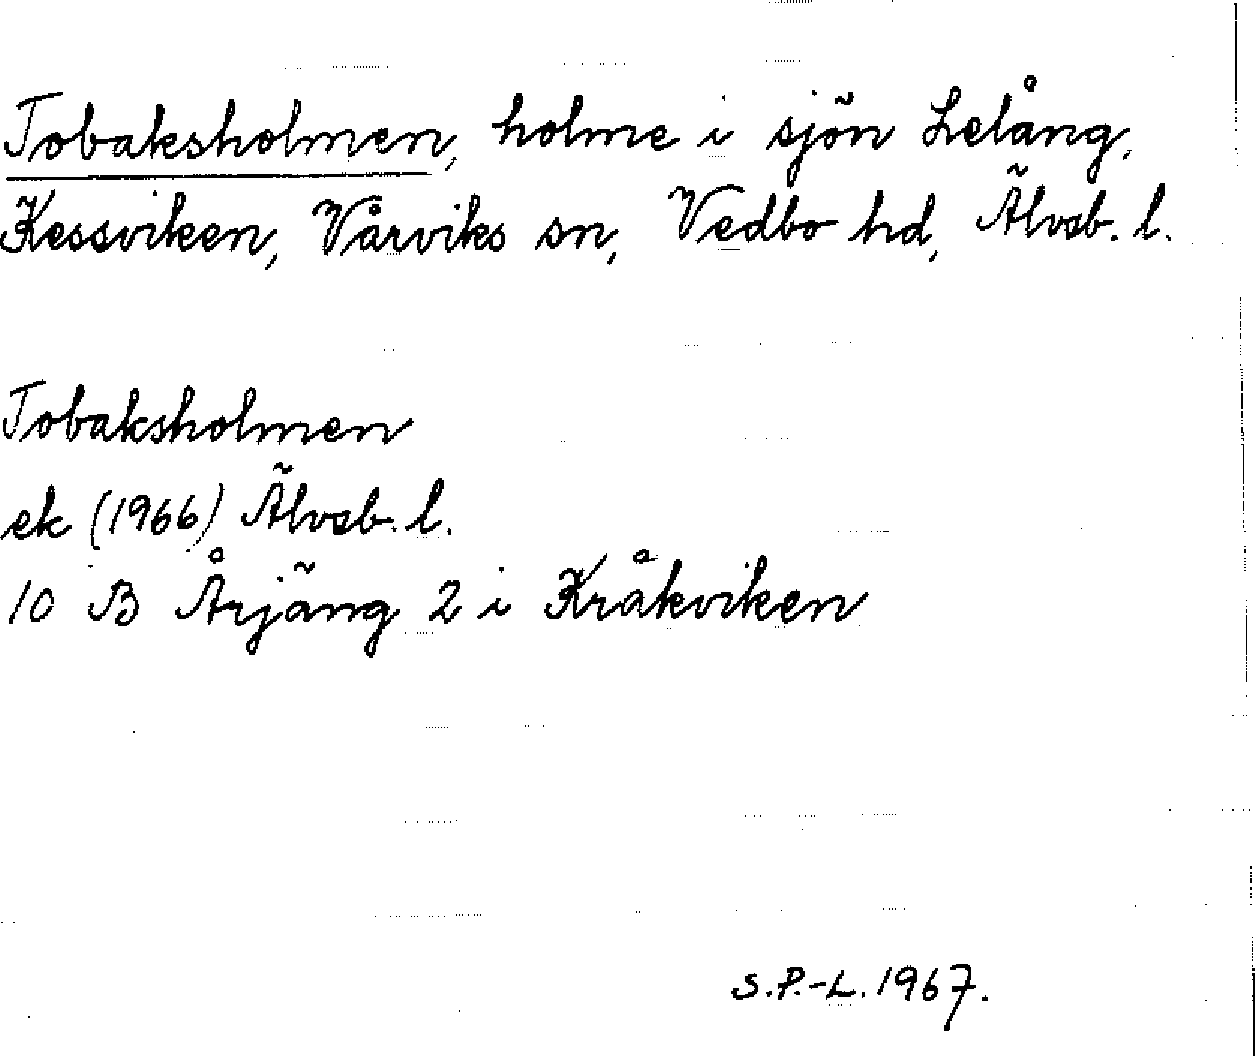 Tobaksholmen, holme i sjön Lelång,
Kessviken, Vårviks sn, Vedbo hd, Älvsb. l.
Tobaksholmen
ek (1966) Älvsb. l.
10 B Årjäng 2 i Kråkviken
S.P.-L. 1967.